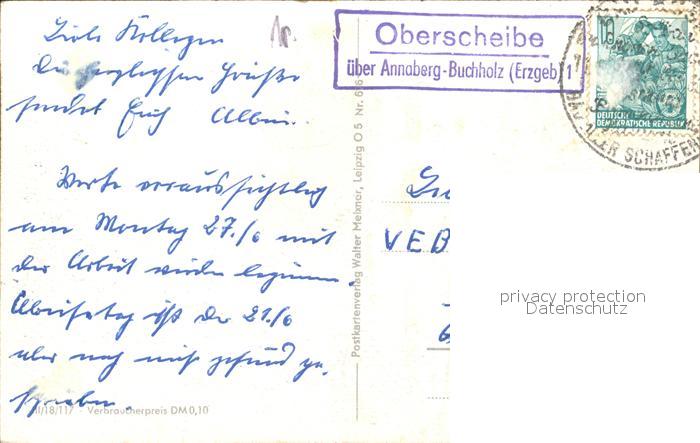 Liebe Kollegen
Die herzlichsten Grüße
sendet Euch Albin.
Werde voraussichtlich
am Montag 27./6 mit
der Arbeit wieder beginnen.
ist der 21./6
aber noch nicht gesund ge-
schrieben.
III/18/117 - Verbraucherpreis DM 0,10
Postkartenverlag Walter Meixner, Leipzig O 5 Nr.
Oberscheibe
über Annaberg-Buchholz (Erzgeb) 1
10
DEUTSCHE
DEMOKRATISCHE REPUBLIK
SCHAFFEN
VEB
privacy protection
Datenschutz